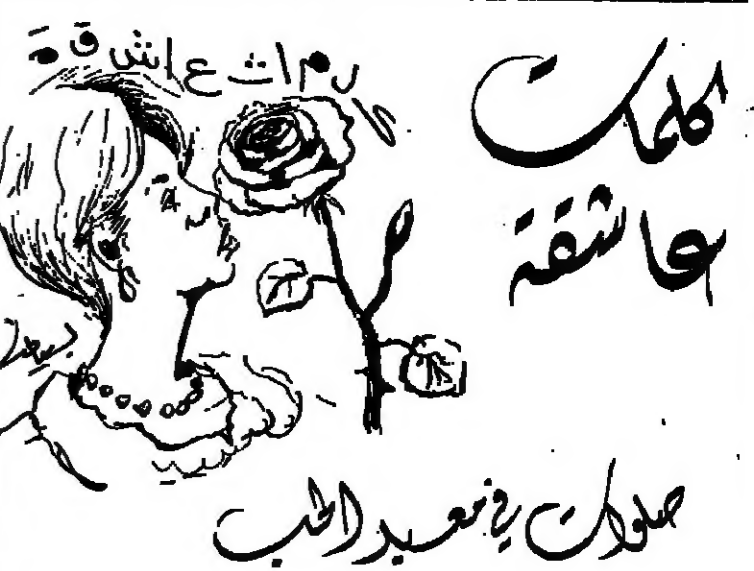 كلمات عاشقة
كلمات
عاشقة
صلوات في معبد الحب